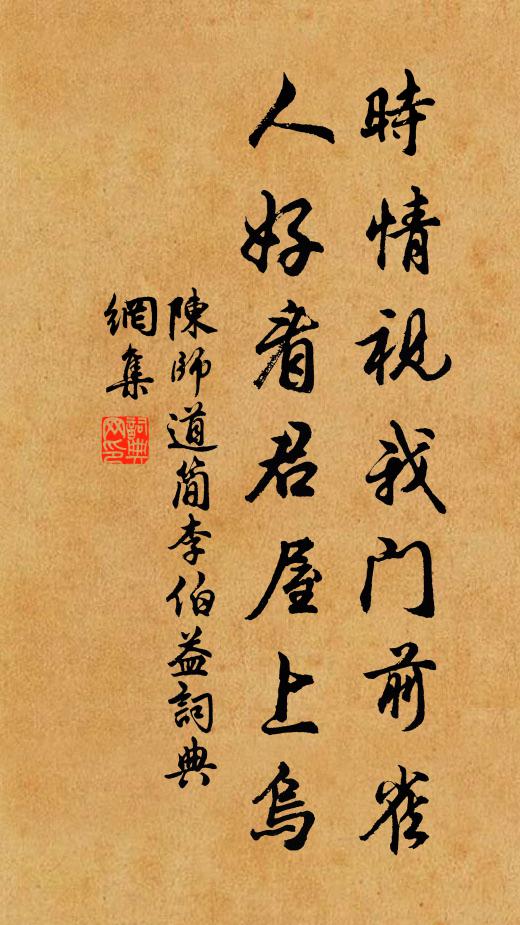 時情視我門前雀
人好看君屋上烏
陳師道簡李伯益詞典
網集
詞典
网印